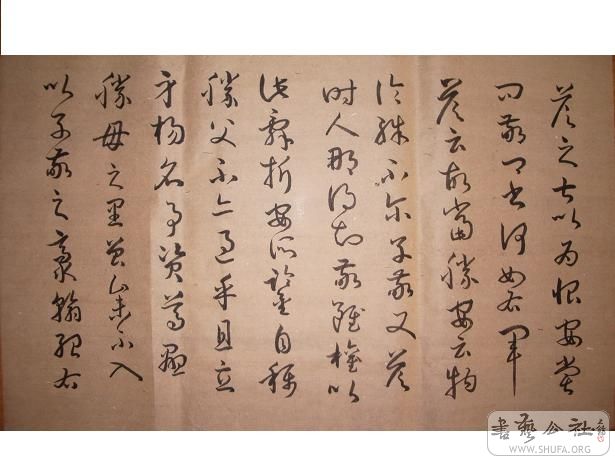 答之甚以為恨安嘗
問敬卿書何如右軍
答云故當勝安云物
論殊不爾子敬又答
時人那得知敬雖權以
此辭折安所鑒自稱
勝父不亦過乎且立
身揚名事資尊顯
勝母之里曾參不入
以子敬之豪翰紹右
書藝公社
WWW.SHUFA.ORG